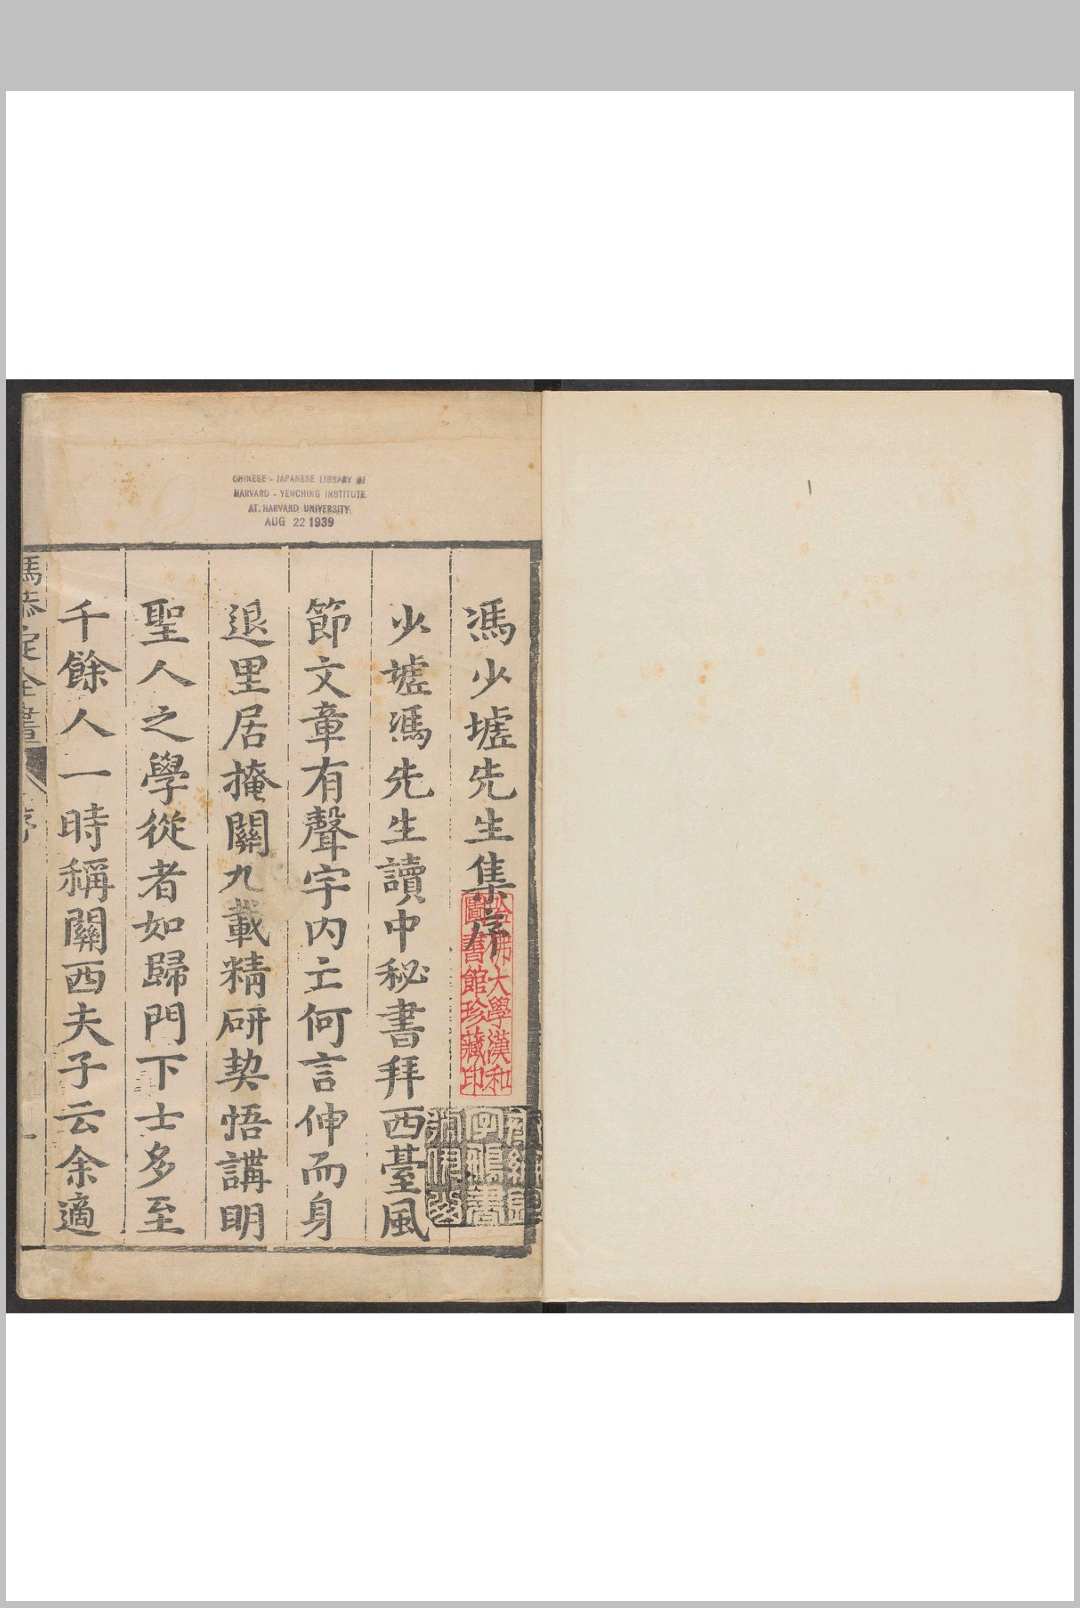 馮少墟先生集序
少墟馮先生讀中秘書拜西臺風
節文章有聲宇内亡何言伸而身
退里居掩關九載精研契悟講明
聖人之學從者如歸門下士多至
千餘人一時稱關西夫子云余適
馮恭定全書
序
一
哈佛大學漢和
圖書館珍藏印
CHINESE - JAPANESE LIBRARY OF
HARVARD - YENCHING INSTITUTE
AT HARVARD UNIVERSITY
AUG 22 1939